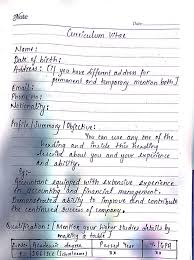 Date
Curriculum Vitae
Name:
Date of birth:
Address: (If you have different address for
permanent and temporary mention both)
Email:
Phone no:
Nationality:
Profile/Summary/Objective:
You can use any one of the
heading and inside this heading
describe about you and your experience
and ability.
Eg:-
Accountant equipped with extensive experience
in accounting and financial management.
Demonstrated ability to improve and contribute
the continued success of company.
Qualification: (Mention your higher studies details by
making a table)
Academic degree Passed Year % GPA